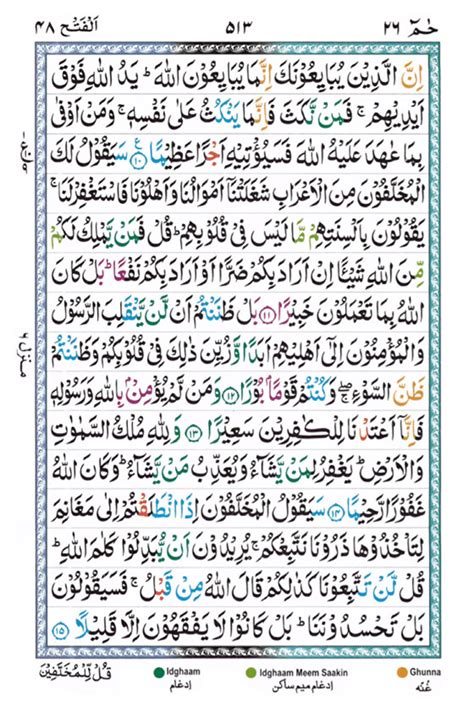 حٰمٓ ۲۶ ۵۱۳ اَلْفَتْح ۴۸
اِنَّ الَّذِيْنَ يُبَايِعُوْنَكَ اِنَّمَا يُبَايِعُوْنَ اللّٰهَ ؕ يَدُ اللّٰهِ فَوْقَ
اَيْدِيْهِمْ ۚ فَمَنْ نَّكَثَ فَاِنَّمَا يَنْكُثُ عَلٰى نَفْسِهٖ ۚ وَمَنْ اَوْفٰى
بِمَا عٰهَدَ عَلَيْهُ اللّٰهَ فَسَيُؤْتِيْهِ اَجْرًا عَظِيْمًا ﴿۱۰﴾ سَيَقُوْلُ لَكَ
الْمُخَلَّفُوْنَ مِنَ الْاَعْرَابِ شَغَلَتْنَاۤ اَمْوَالُنَا وَاَهْلُوْنَا فَاسْتَغْفِرْ لَنَا ۚ
يَقُوْلُوْنَ بِاَلْسِنَتِهِمْ مَّا لَيْسَ فِيْ قُلُوْبِهِمْ ؕ قُلْ فَمَنْ يَّمْلِكُ لَكُمْ
مِّنَ اللّٰهِ شَيْـًٔا اِنْ اَرَادَ بِكُمْ ضَرًّا اَوْ اَرَادَ بِكُمْ نَفْعًا ؕ بَلْ كَانَ
اللّٰهُ بِمَا تَعْمَلُوْنَ خَبِيْرًا ﴿۱۱﴾ بَلْ ظَنَنْتُمْ اَنْ لَّنْ يَّنْقَلِبَ الرَّسُوْلُ
وَالْمُؤْمِنُوْنَ اِلٰۤى اَهْلِيْهِمْ اَبَدًا وَّزُيِّنَ ذٰلِكَ فِيْ قُلُوْبِكُمْ وَظَنَنْتُمْ
ظَنَّ السَّوْءِ ۖۚ وَكُنْتُمْ قَوْمًاۢ بُوْرًا ﴿۱۲﴾ وَمَنْ لَّمْ يُؤْمِنْۢ بِاللّٰهِ وَرَسُوْلِهٖ
فَاِنَّاۤ اَعْتَدْنَا لِلْكٰفِرِيْنَ سَعِيْرًا ﴿۱۳﴾ وَلِلّٰهِ مُلْكُ السَّمٰوٰتِ
وَالْاَرْضِ ؕ يَغْفِرُ لِمَنْ يَّشَآءُ وَيُعَذِّبُ مَنْ يَّشَآءُ ؕ وَكَانَ اللّٰهُ
غَفُوْرًا رَّحِيْمًا ﴿۱۴﴾ سَيَقُوْلُ الْمُخَلَّفُوْنَ اِذَا انْطَلَقْتُمْ اِلٰى مَغَانِمَ
لِتَاْخُذُوْهَا ذَرُوْنَا نَتَّبِعْكُمْ ۚ يُرِيْدُوْنَ اَنْ يُّبَدِّلُوْا كَلٰمَ اللّٰهِ ؕ
قُلْ لَّنْ تَتَّبِعُوْنَا كَذٰلِكُمْ قَالَ اللّٰهُ مِنْ قَبْلُ ۚ فَسَيَقُوْلُوْنَ
بَلْ تَحْسُدُوْنَنَا ؕ بَلْ كَانُوْا لَا يَفْقَهُوْنَ اِلَّا قَلِيْلًا ﴿۱۵﴾
منزل ۶
قُلْ لِّلْمُخَلَّفِيْنَ
Idghaam Idghaam Meem Saakin Ghunna
اِدغام اِدغام میم ساکن غُنّه